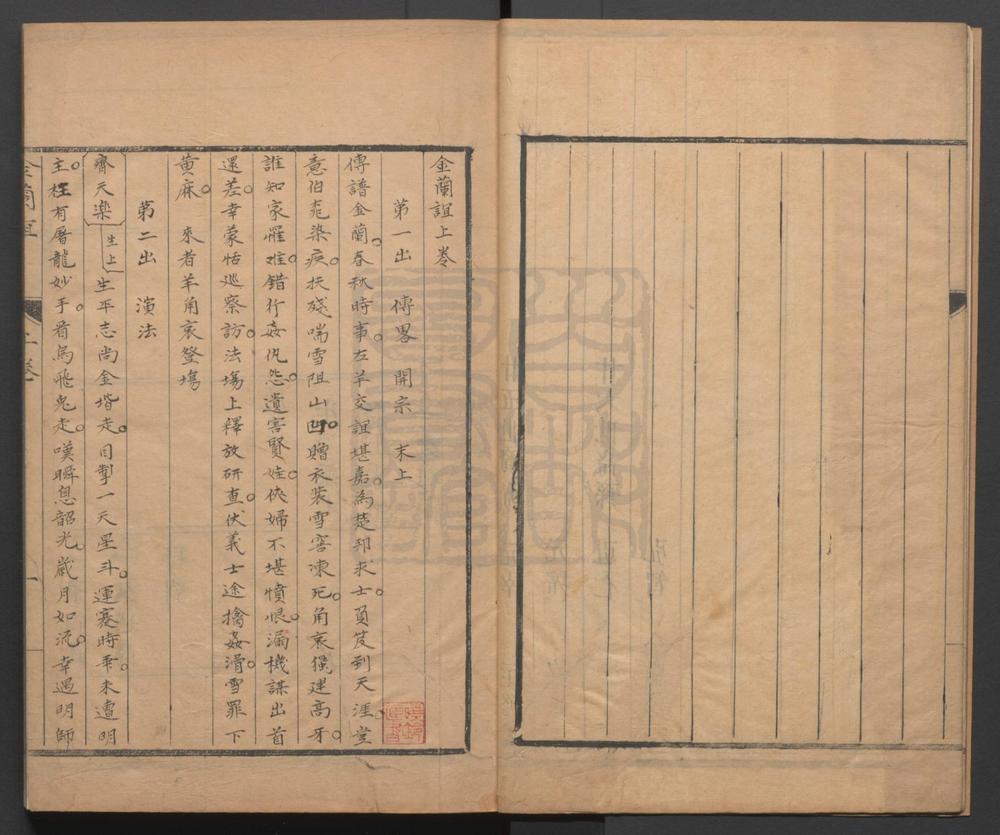 金蘭誼上卷
第一出 傳畧 開宗 末上
傳譜金蘭春秋時事左羊交誼堪嘉為楚邦求士負笈到天涯豈
意伯桃染疾扶殘喘雪阻山凹贈衣裝雪窖凍死角哀獨建高牙
誰知家罹難錯行姦仇怨遺害賢娃俠婦不堪憤恨漏機謀出首
還差幸蒙恬巡察訪法場上釋放研查伏義士途擒姦滑雪罪下
黄麻 來者羊角哀登場
第二出 演法
齊天樂 生上 生平志尚金堦走目掣一天星斗運蹇時乖未遭明
主枉有屠龍妙手看烏飛兔走嘆瞬息韶光歲月如流幸遇明師
金蘭誼 上卷 一